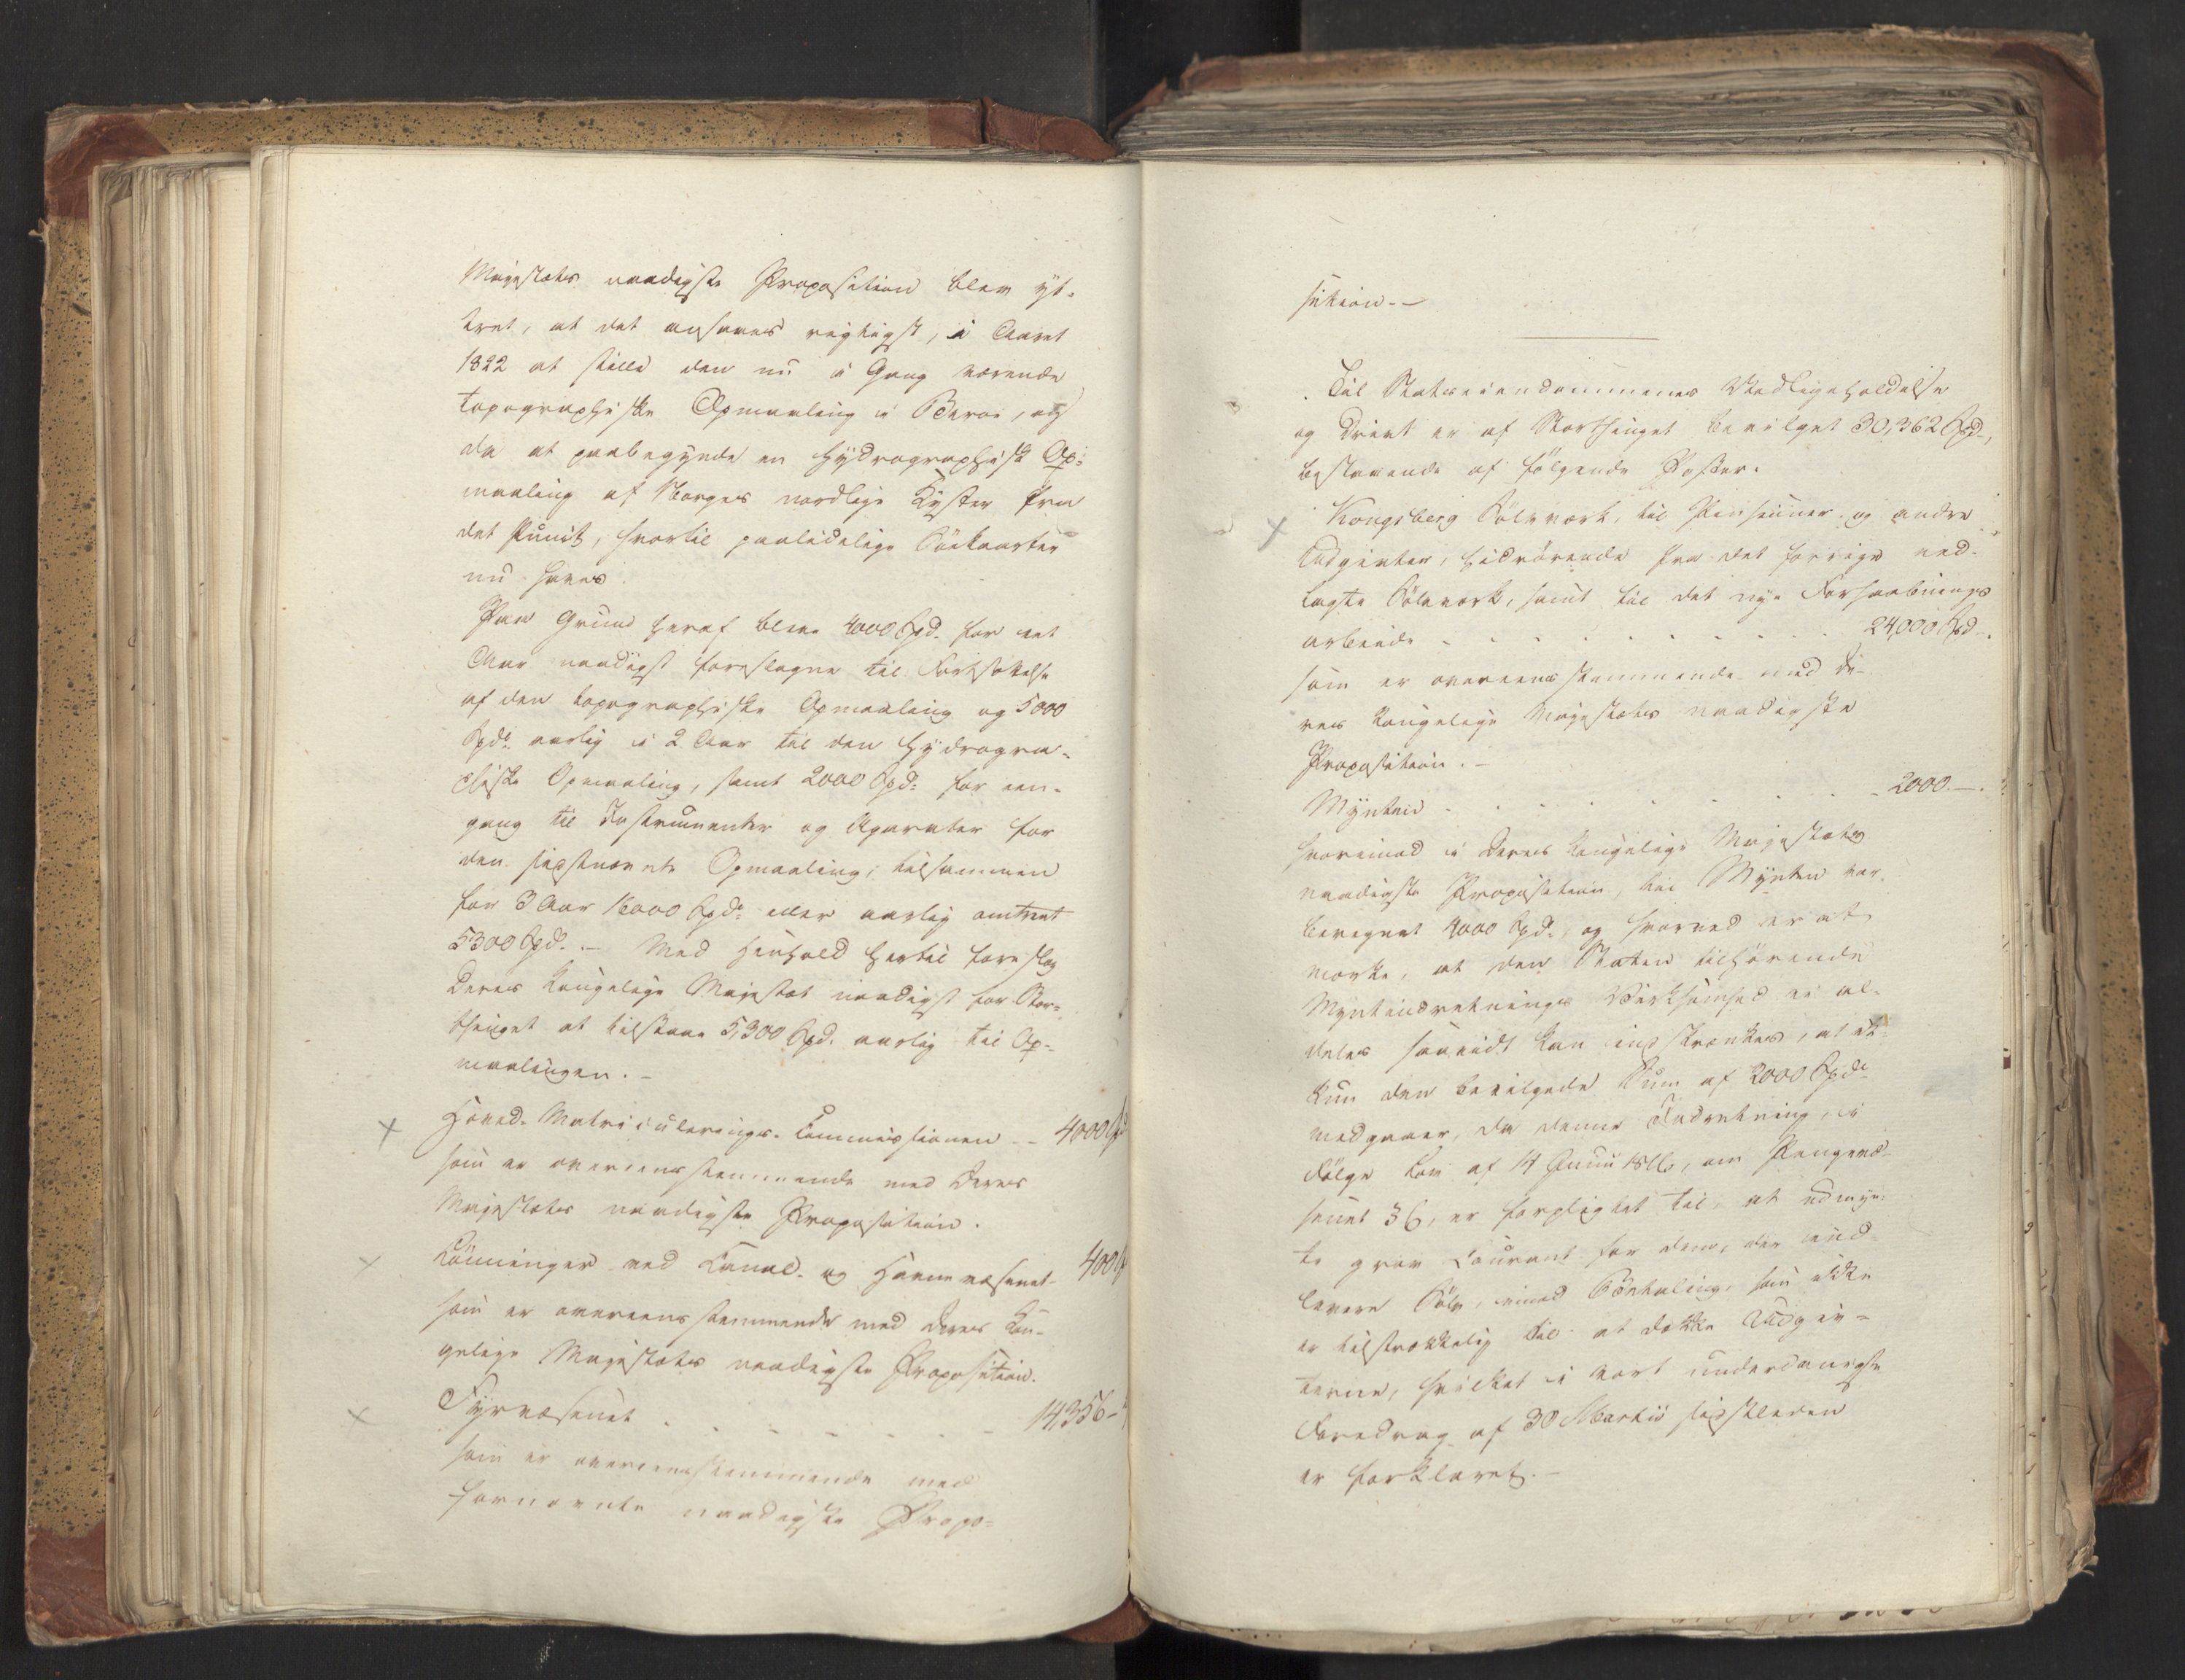 Majestæts naadigste Proposition blev yt-
tret, at det ansaaes rigtigst, i Aaret
1822 at stille den nu i Gang værende
topographiske Opmaaling i Beroe, og
da at paabegynde en hydrographisk Op-
maaling af Norges nordlige Kyster fra
det Punct, hvortil paalidelige Søekaarter
nu haves.
Paa Grund heraf bleve 4000 Spd. for eet
Aar naadigst foreslagne til Fortsættelse
af den topographiske Opmaaling og 5000
Spdr. aarlig i 2 Aar til den hydrogra-
phiske Opmaaling, samt 2000 Spd: for een-
gang til Instrumenter og Aparater for
den sidstnævnte Opmaaling; tilsammen
for 3 Aar 16000 Spdr eller aarlig omtrent
5300 Spdr. – Med Henhold hertil foreslog
Deres Kongelige Majestæt naadigst for Stor-
thinget at tilstaae 5,300 Spd. aarlig til Op-
maalingen. –
× Hoved-Matriculerings-Commissionen -- 4000 Spd
som er overeensstemmende med Deres
Majestæts naadigste Proposition.
× Lønninger ved Canal- og Havnevæsenet - 400
som er overeensstemmende med Deres Kon-
gelige Majestæts naadigste Proposition.
× Fyrvæsenet . - - - - - - 14356 -
som er overeensstemmende med
fornævnte naadigste Propo-
sition. –
Til Statseiendommenes Vedligeholdelse
og Drivt er af Storthinget bevilget 30,362 Spd.,
bestaaende af følgende Poster:
× Kongsberg Sølvværk, til Pensioner og andre
Udgivter, hidrørende fra det forrige ned-
lagte Sølvværk, samt til det nye Forhaabnings
arbeide - - - - - - - - - 24,000 Spd.
som er overeensstemmende med De-
res Kongelige Majestæts naadigste
Proposition. –
Mynten - - - - - - - - 2000 –.
hvorimod i Deres Kongelige Majestæts
naadigste Proposition, til Mynten var
beregnet 4000 Spd., og hvorved er at
mærke, at den Staten tilhørende
Myntindretnings Virksomhed ei al-
deles saavidt kan indskrænkes, at
kun den bevilgede Sum af 2000 Spdr
medgaaer, da denne Indretning, i
Følge Lov af 14 Junii 1816, om Pengevæ-
senet § 6, er forpligtet til, at udmyn-
te grov Courant for dem, der ind-
levere Sølv, imod Betaling, som ikke
er tilstrækkelig til at dække Udgiv-
terne, hvilket i vort underdanigste
Foredrag af 30 Martii sidstleden
er forklaret. –